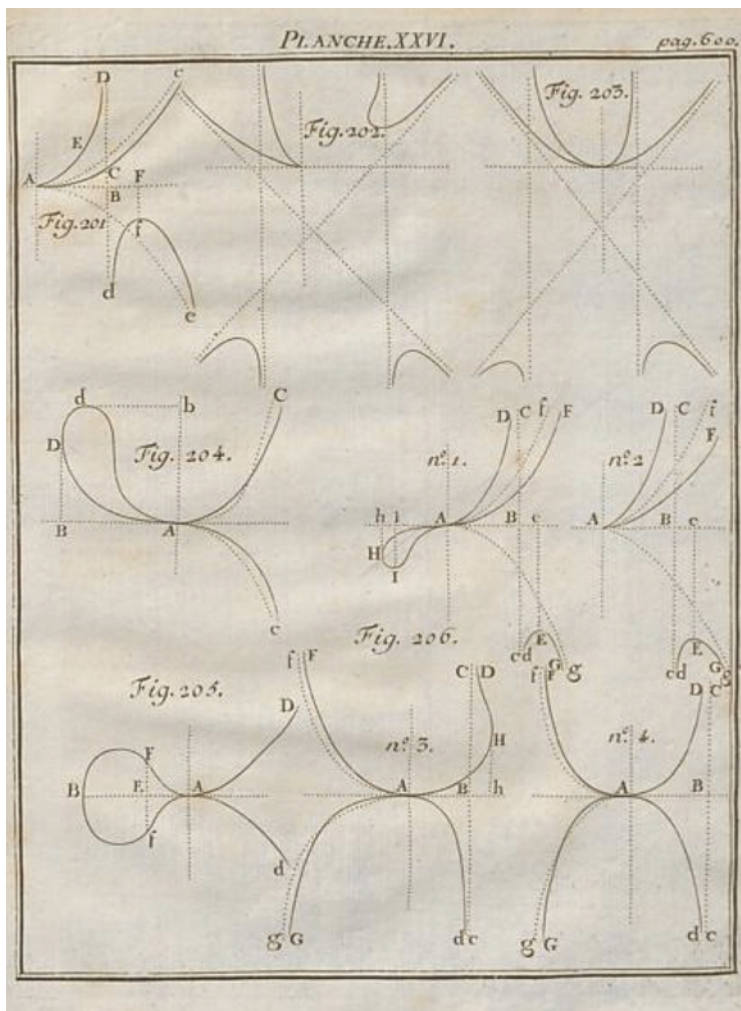 PLANCHE.XXVI.
pag.600.
D
c
E
A
C
F
B
f
Fig.201
d
e
Fig.202.
Fig.203.
d
b
C
D
Fig. 204.
B
A
c
D
C
f
F
nº.1.
h
i
A
B
e
H
I
c
d
E
G
g
D
C
i
F
nº.2
A
B
e
c
d
E
G
g
Fig. 205.
Fig. 206.
D
F
B
E
A
f
d
f
F
C
D
nº.3
H
A
B
h
g
G
d
c
f
F
D
C
nº.4.
A
B
g
G
d
c